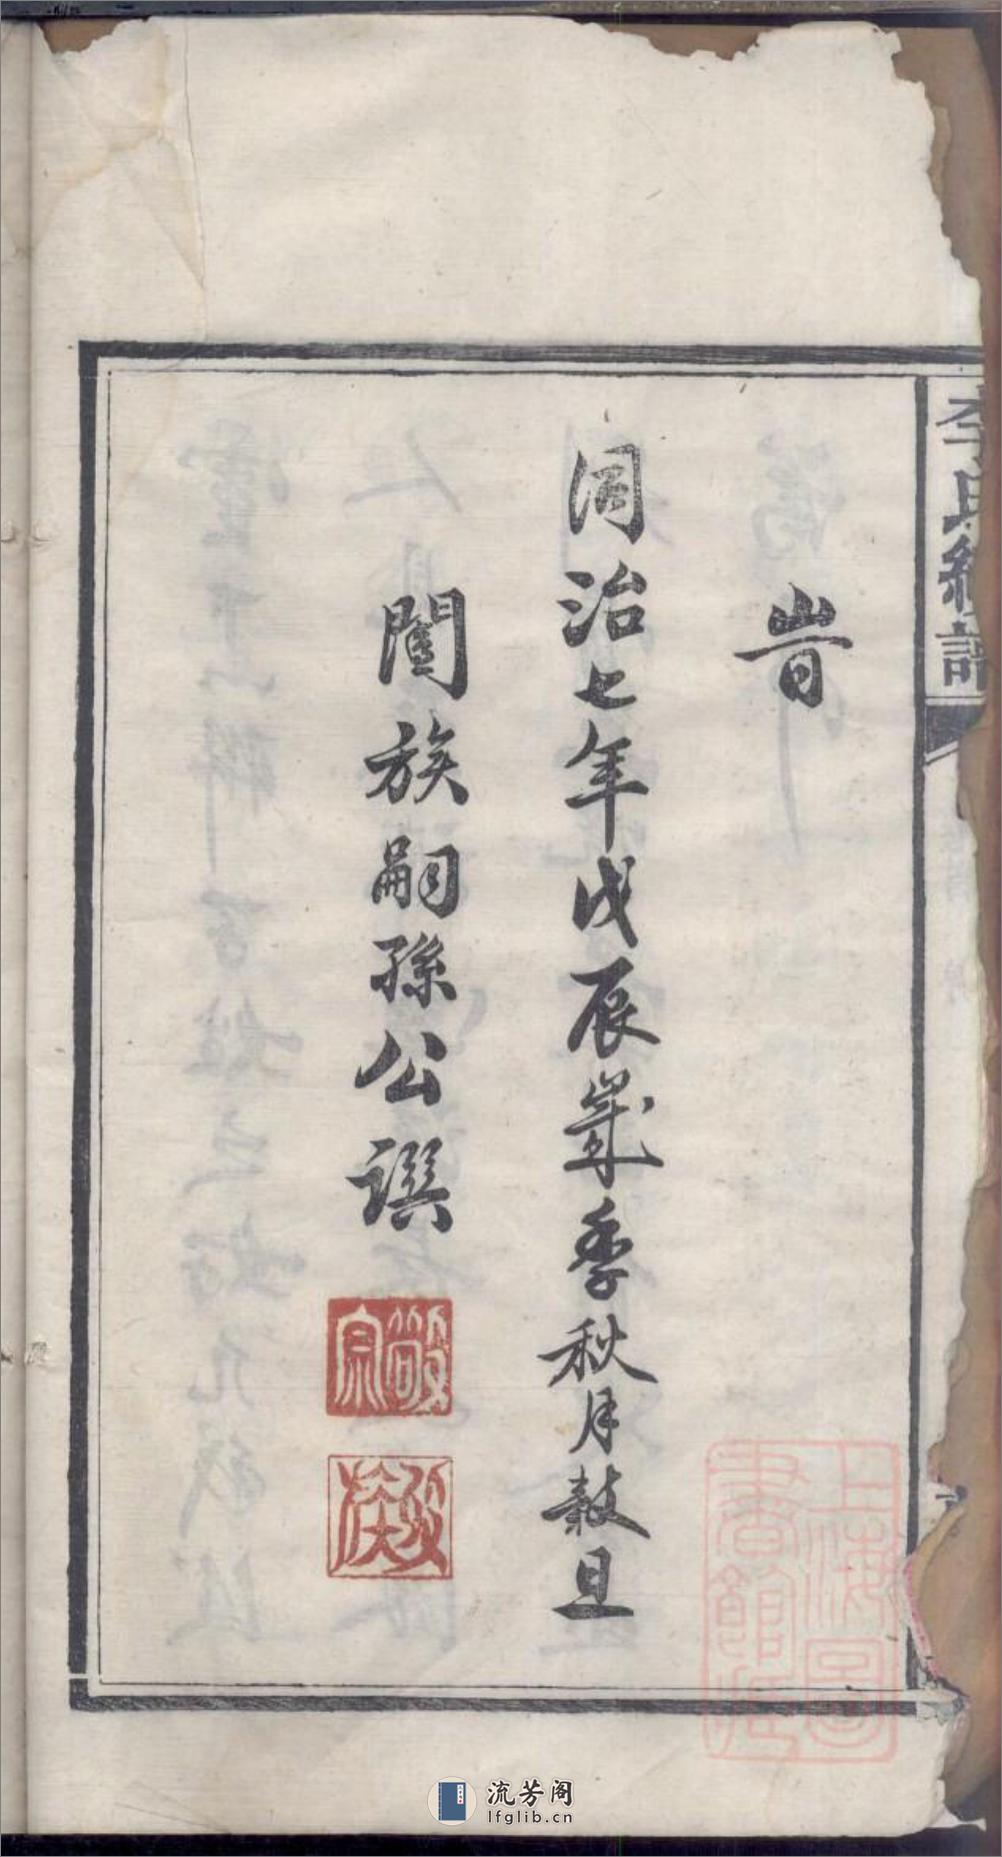 旹
同治七年戊辰歲季秋月穀旦
闔族嗣孫公譔
敬宗
收族
李氏
譜
上海图
書館藏
流芳阁
lfglib.cn